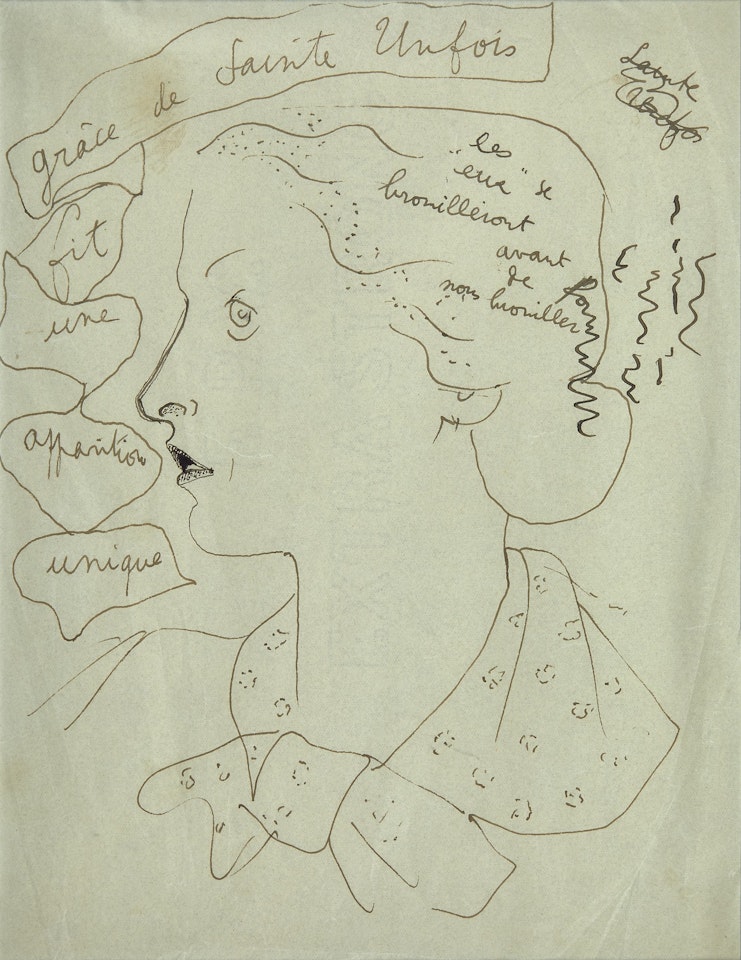 grâce de Sainte Unfois
fit
une
apparition
unique
Sainte
les
"eux" se
brouilleront
avant
de
nous brouiller